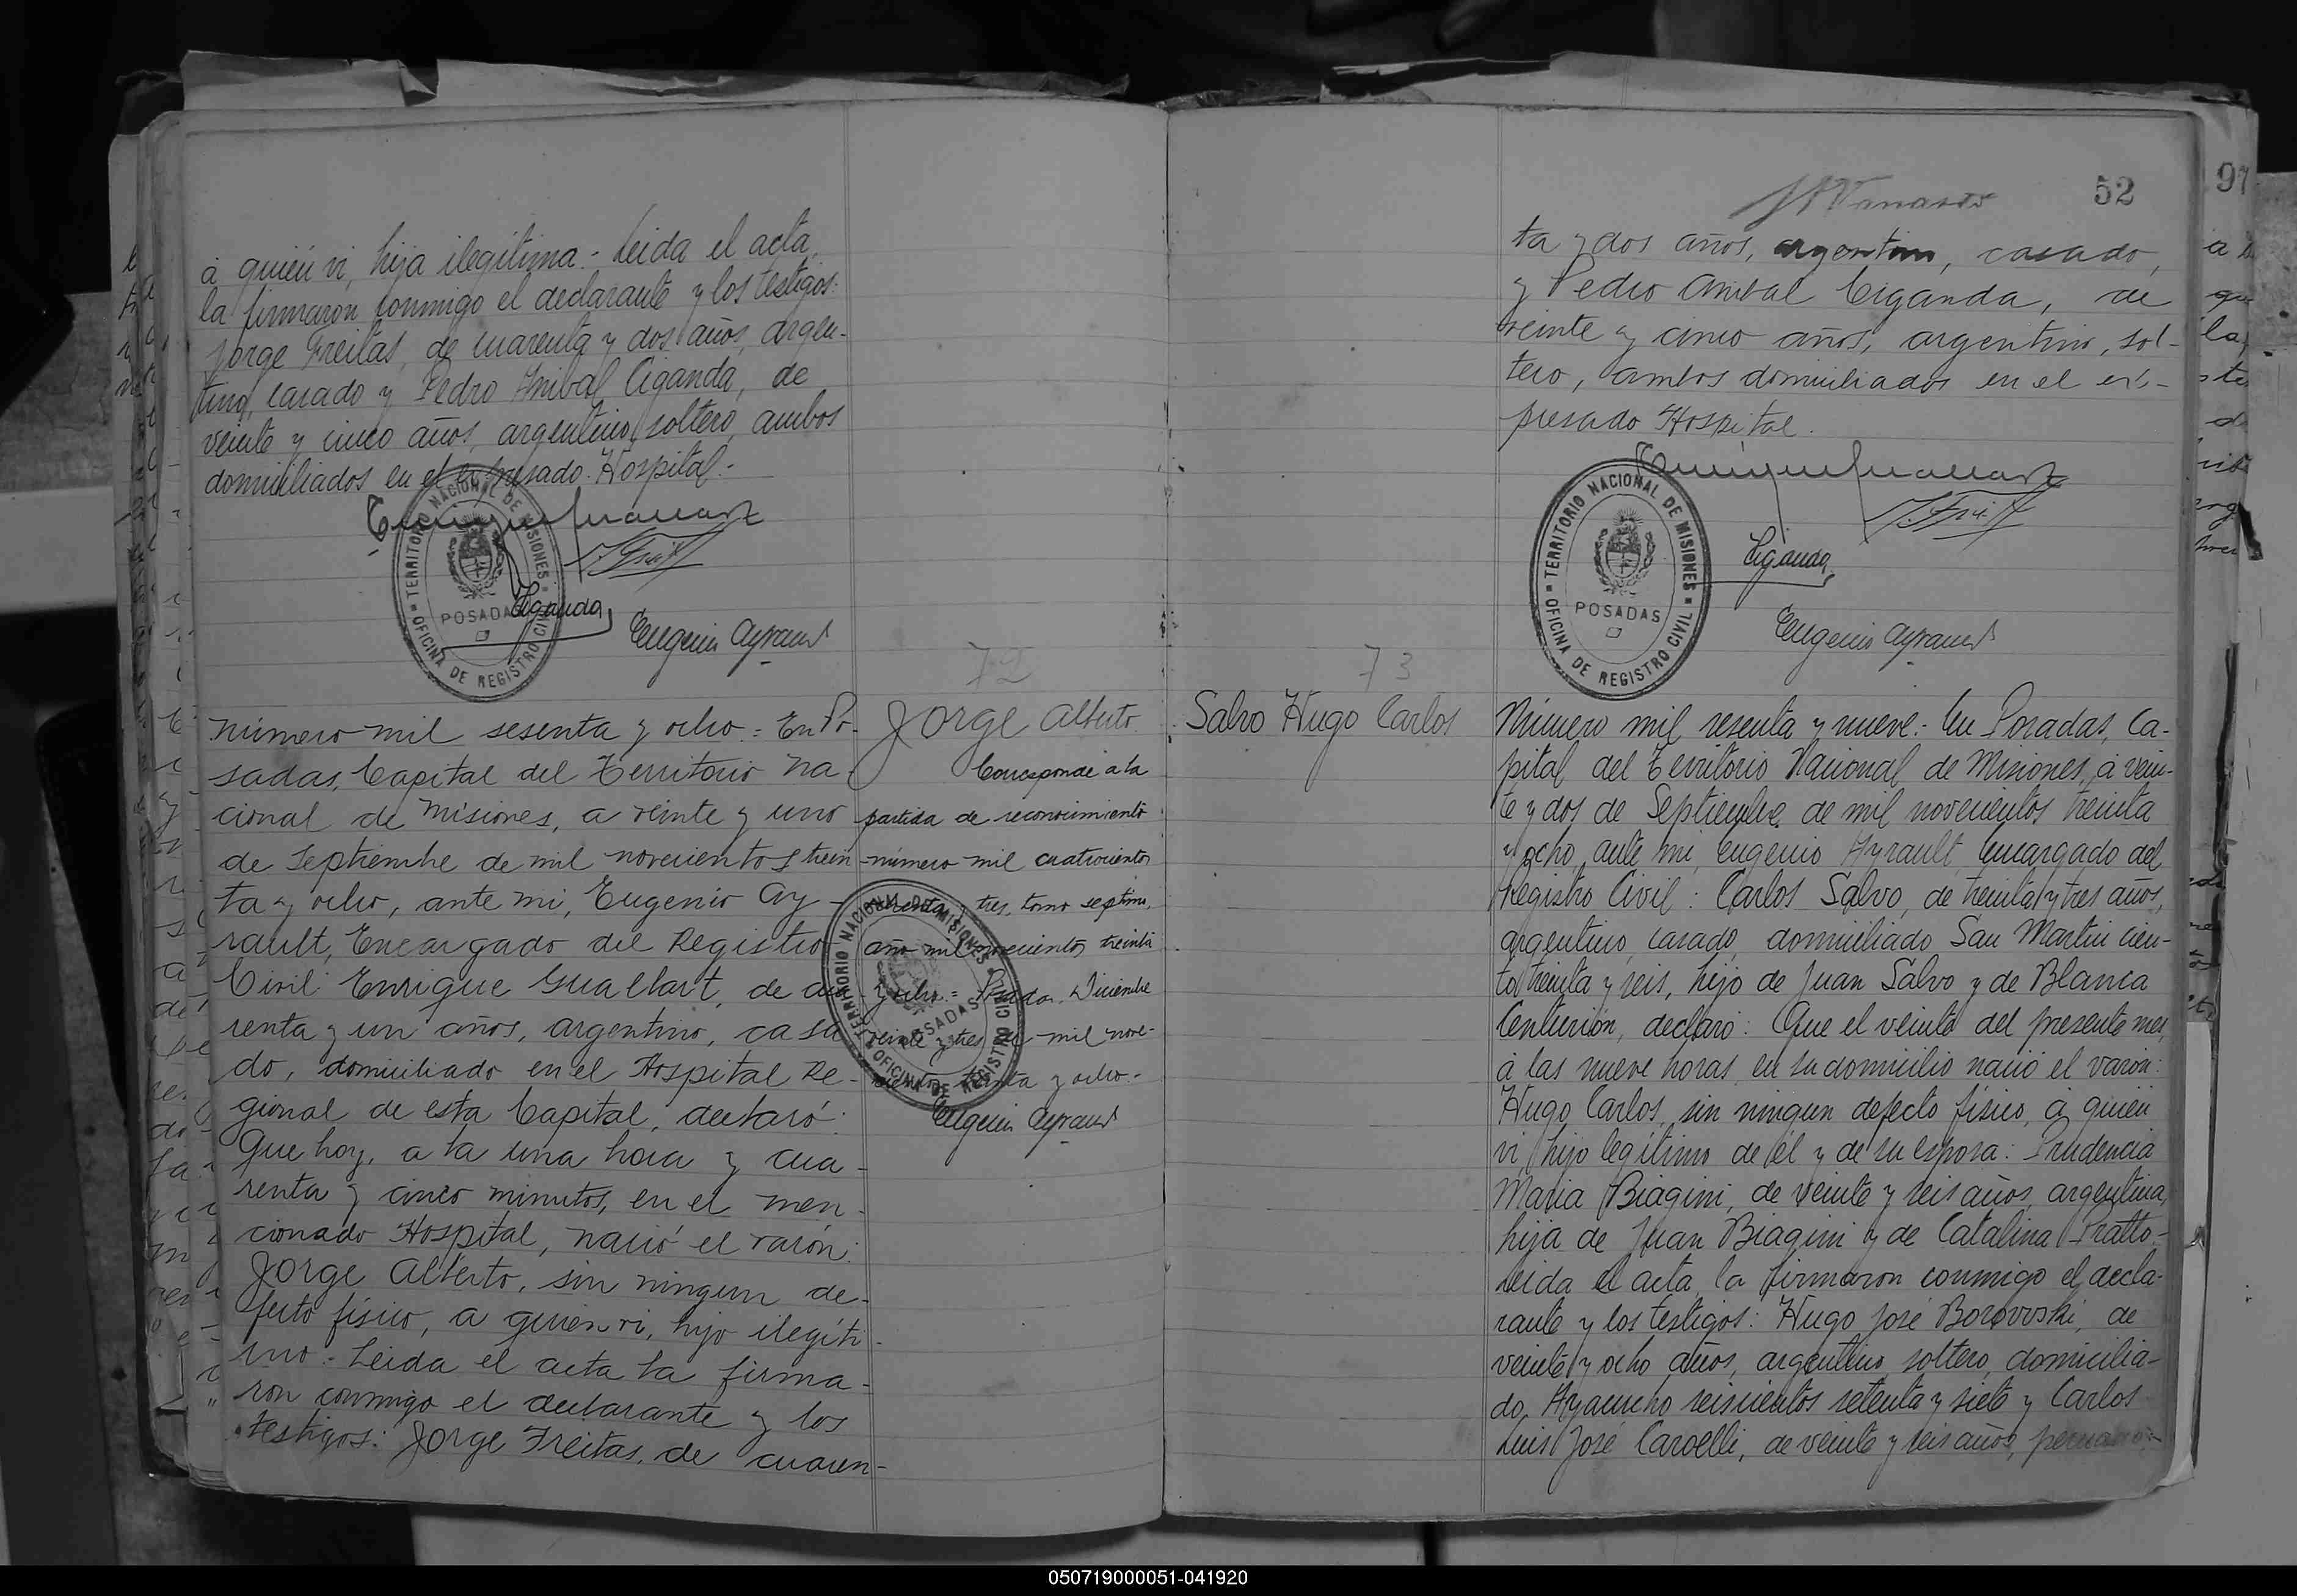 à quién vi, hija ilegítima.- Leida el acta,
la firmaron conmigo el declarante y los testigos:
Jorge Freitas, de cuarenta y dos años, argen-
tino, casado y Pedro Anibal Ciganda, de
veinte y cinco años, argentino, soltero, ambos
domiciliados en el expresado Hospital.-
TERRITORIO NACIONAL DE MISIONES
POSADAS
OFICINA DE REGISTRO CIVIL
Ciganda
Eugenio Ayrault
72
número mil sesenta y ocho.= En Po-
sadas, Capital del Territorio Na
cional de Misiones, a veinte y uno
de Septiembre de mil novecientos trein
ta y ocho, ante mi, Eugenio Ay-
rault, Encargado del Registro
Civil: Enrique Guallart, de cua
renta y un años, argentino, casa
do, domiciliado en el Hospital Re-
gional de esta Capital, declaró:
Que hoy, a la una hora y cua-
renta y cinco minutos, en el men-
cionado Hospital, nació el varón:
Jorge Alberto, sin ningun de-
fecto físico, a quien vi, hijo ilegíti-
mo.- Leida el acta la firma-
ron conmigo el declarante y los
testigos: Jorge Freitas, de cuaren-
Jorge Alberto.
Corresponde a la
partida de reconocimiento
número mil cuatrocientos
tres, tomo septimo,
año mil novecientos treinta
y ocho.= Posadas, Diciembre
veinte y tres de mil nove-
cientos treinta y ocho.-
TERRITORIO NACIONAL DE MISIONES
POSADAS
OFICINA DE REGISTRO CIVIL
Eugenio Ayrault
52
97
ta y dos años, argentino, casado,
y Pedro Anibal Ciganda, de
veinte y cinco años, argentino, sol-
tero, ambos domiciliados en el ex-
presado Hospital.
TERRITORIO NACIONAL DE MISIONES
POSADAS
OFICINA DE REGISTRO CIVIL
Ciganda
Eugenio Ayrault
73
Salvo Hugo Carlos
Número mil sesenta y nueve.- En Posadas, Ca-
pital del Territorio Nacional de Misiones, à vein-
te y dos de Septiembre de mil novecientos treinta
y ocho, ante mi, Eugenio Ayrault, Encargado del
Registro Civil: Carlos Salvo, de treinta y tres años,
argentino, casado, domiciliado San Martin cien-
to treinta y seis, hijo de Juan Salvo y de Blanca
Centurión, declaró: Que el veinte del presente mes,
à las nueve horas, en su domicilio nació el varón:
Hugo Carlos, sin ningun defecto físico, à quién
vi, hijo legítimo de él y de su esposa: Prudencia
Maria Biagini, de veinte y seis años, argentina,
hija de Juan Biagini y de Catalina Pratto.-
Leida el acta, la firmaron conmigo el decla-
rante y los testigos: Hugo José Borovvski, de
veinte y ocho años, argentino, soltero, domicilia-
do, Ayacucho seiscientos setenta y siete y Carlos
Luis José Caroelli, de veinte y seis años,
050719000051-041920